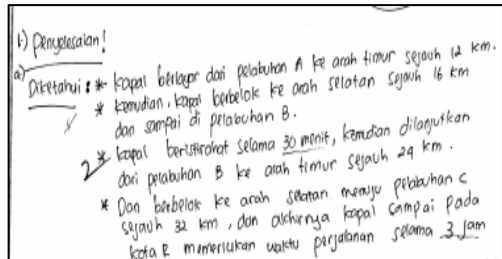 1.) Penyelesaian!
a) Diketahui : * kapal berlayar dari pelabuhan A ke arah timur sejauh 12 km.
* kemudian, kapal berbelok ke arah selatan sejauh 16 km
dan sampai di pelabuhan B.
2 * kapal beristirahat selama 30 menit, kemudian dilanjutkan
dari pelabuhan B ke arah timur sejauh 24 km.
* Dan berbelok ke arah selatan menuju pelabuhan C
sejauh 32 km, dan akhirnya kapal sampai pada
kota R memerlukan waktu perjalanan selama 3 jam